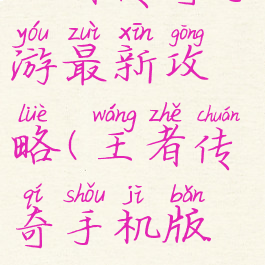 yóu zuì xīn gōng
游最新攻
lüè wáng zhě chuán
略(王者传
qí shǒu jī bǎn
奇手机版